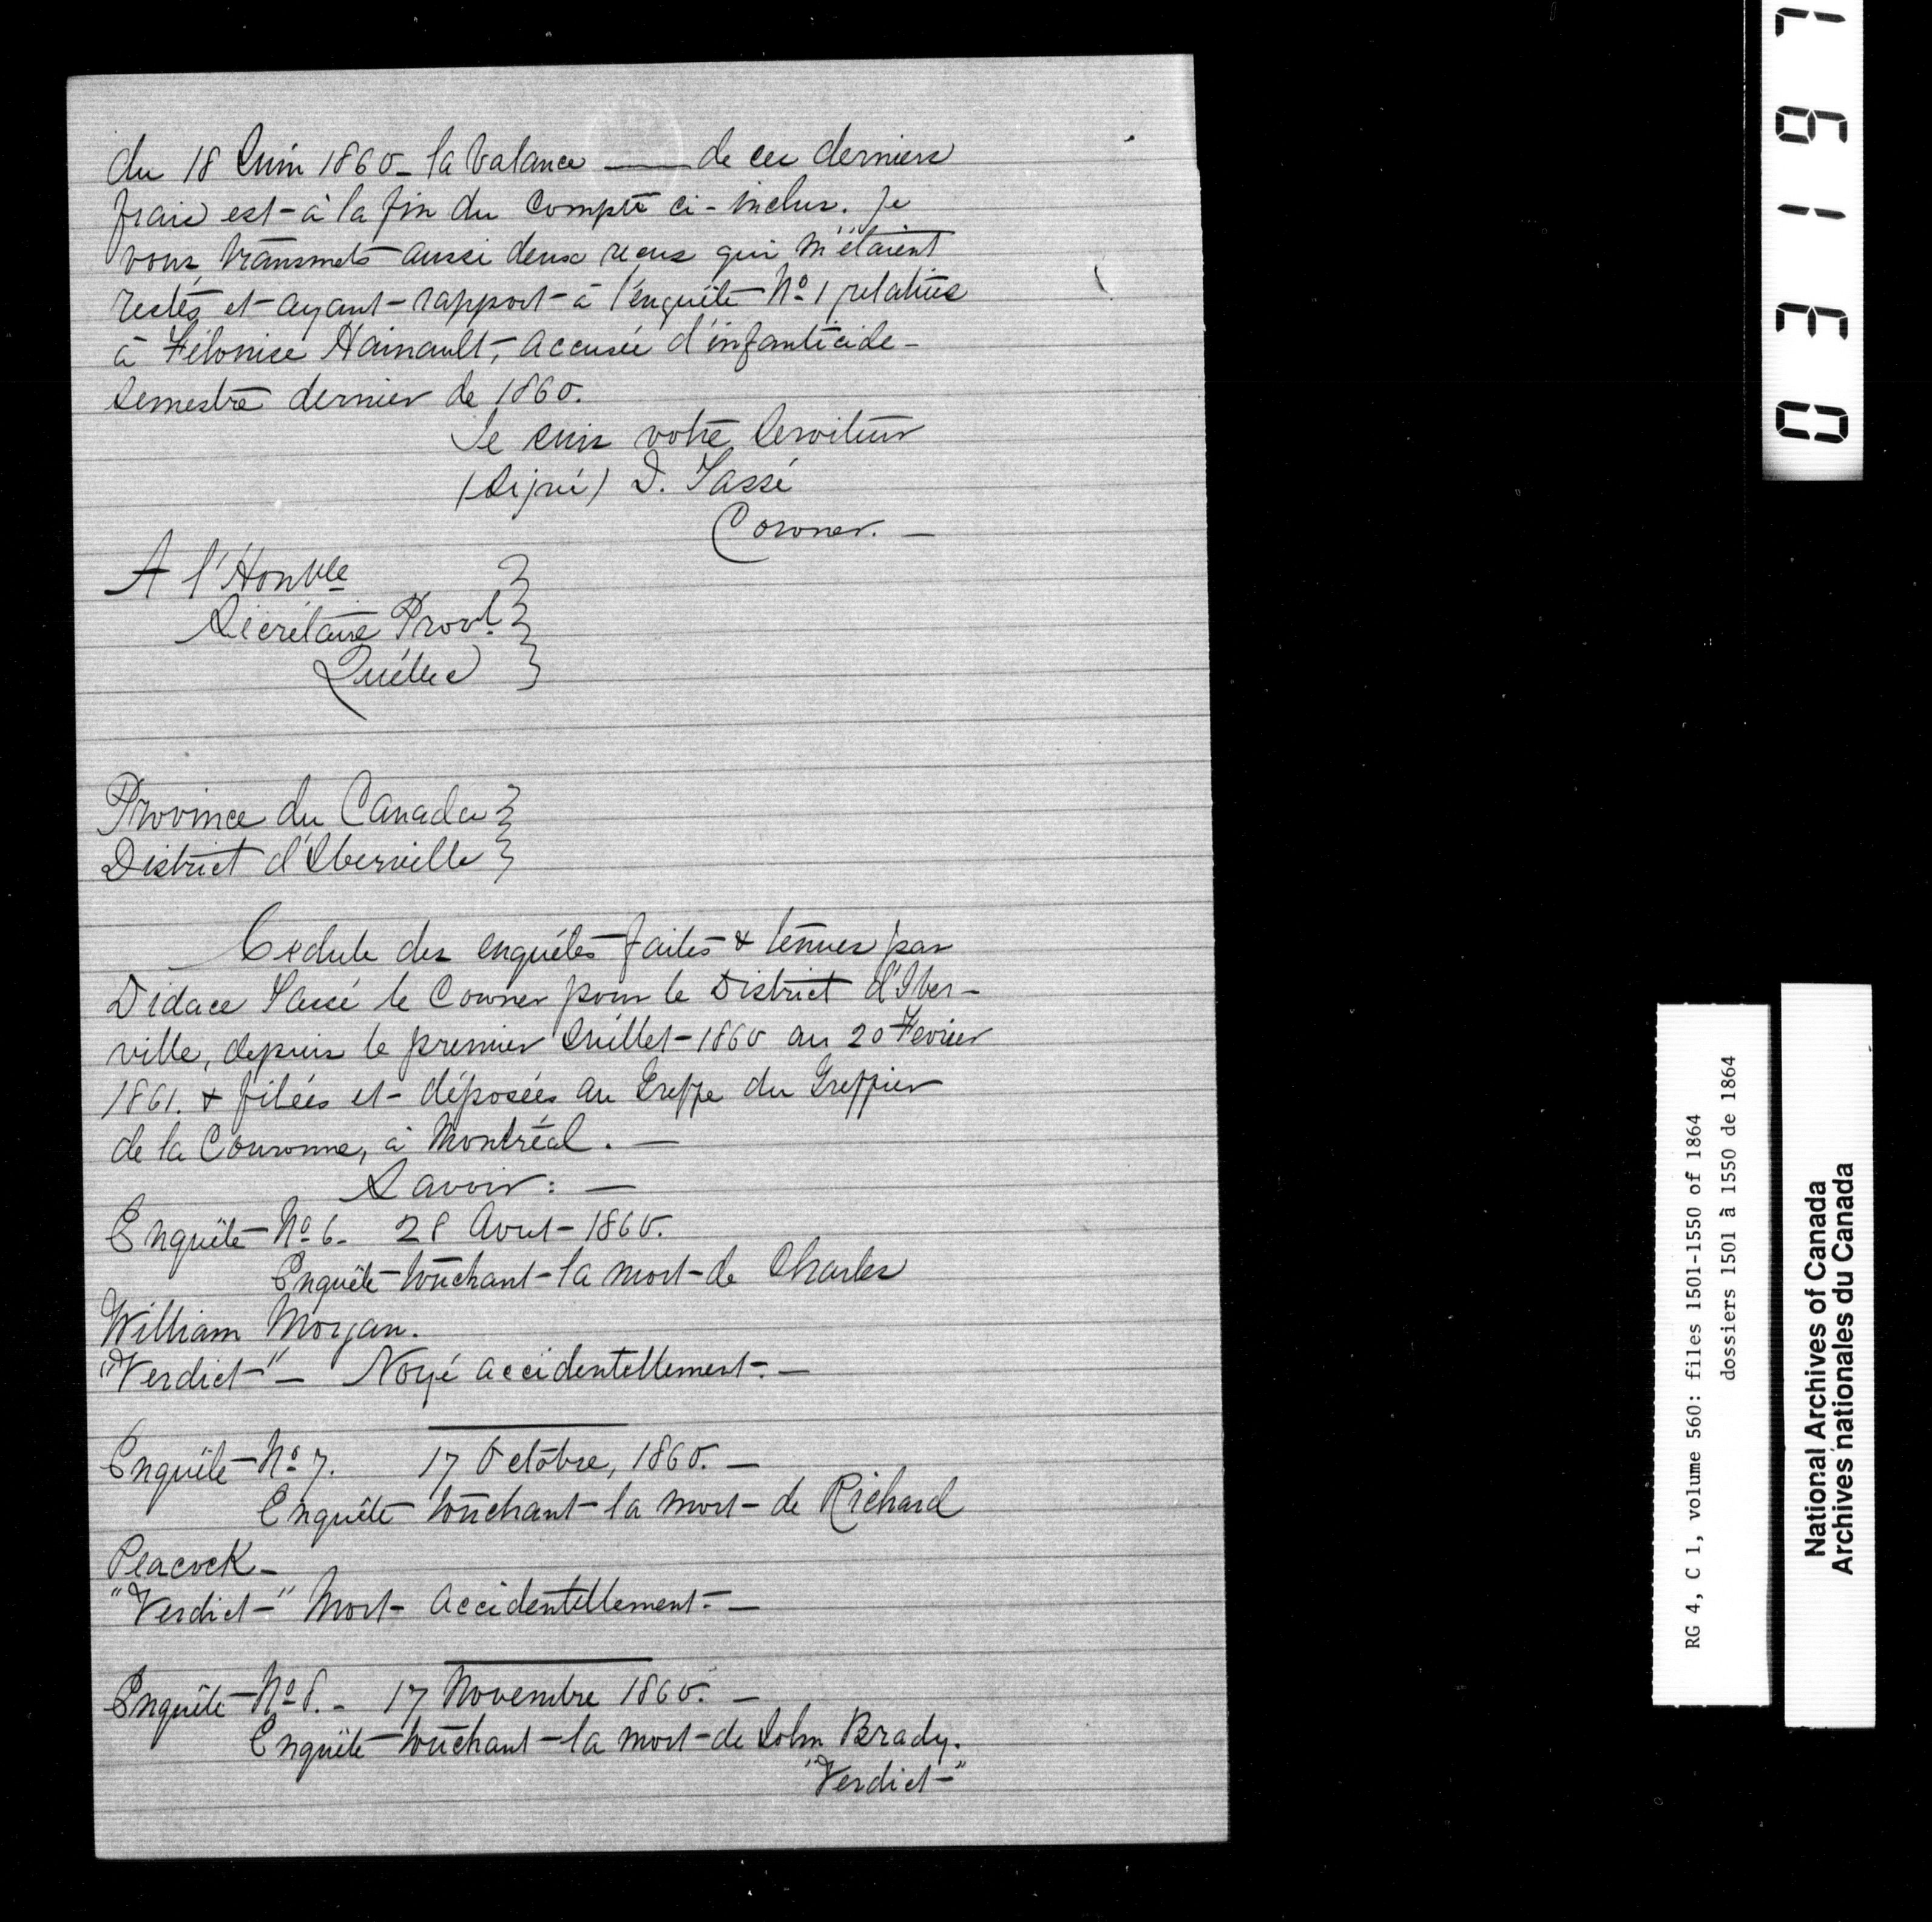 du 18 Juin 1860 - la balance —— de ces derniers
frais est à la fin du compte ci-inclus. Je
vous transmets aussi deux reçus qui m'étaient
restés et ayant rapport à l'enquête No. 1 relative
à Félonise Hainault, accusée d'infanticide -
Semestre dernier de 1860.
Je suis votre Serviteur
(Signé) D. Tassé
Coroner. —
A l'Honble
Secrétaire Provl.
Québec
Province du Canada
District d'Iberville
Cedule des enquêtes faites & tenues par
Didace Tassé le Coroner pour le District d'Iber-
ville, depuis le premier Juillet 1860 au 20 Fevrier
1861. & filées et déposées au Greffe du Greffier
de la Couronne, à Montréal. —
Savoir : —
Enquête No. 6. 28 Aout 1860.
Enquête touchant la mort de Charles
William Morgan.
"Verdict" — Noyé accidentellement. —
Enquête No. 7. 17 Octobre, 1860. —
Enquête touchant la mort de Richard
Peacock -
"Verdict" Mort accidentellement. —
Enquête No. 8. - 17 Novembre 1860. —
Enquête touchant la mort de John Brady.
"Verdict"
03197
RG 4, C 1, volume 560: files 1501-1550 of 1864
dossiers 1501 à 1550 de 1864
National Archives of Canada
Archives nationales du Canada